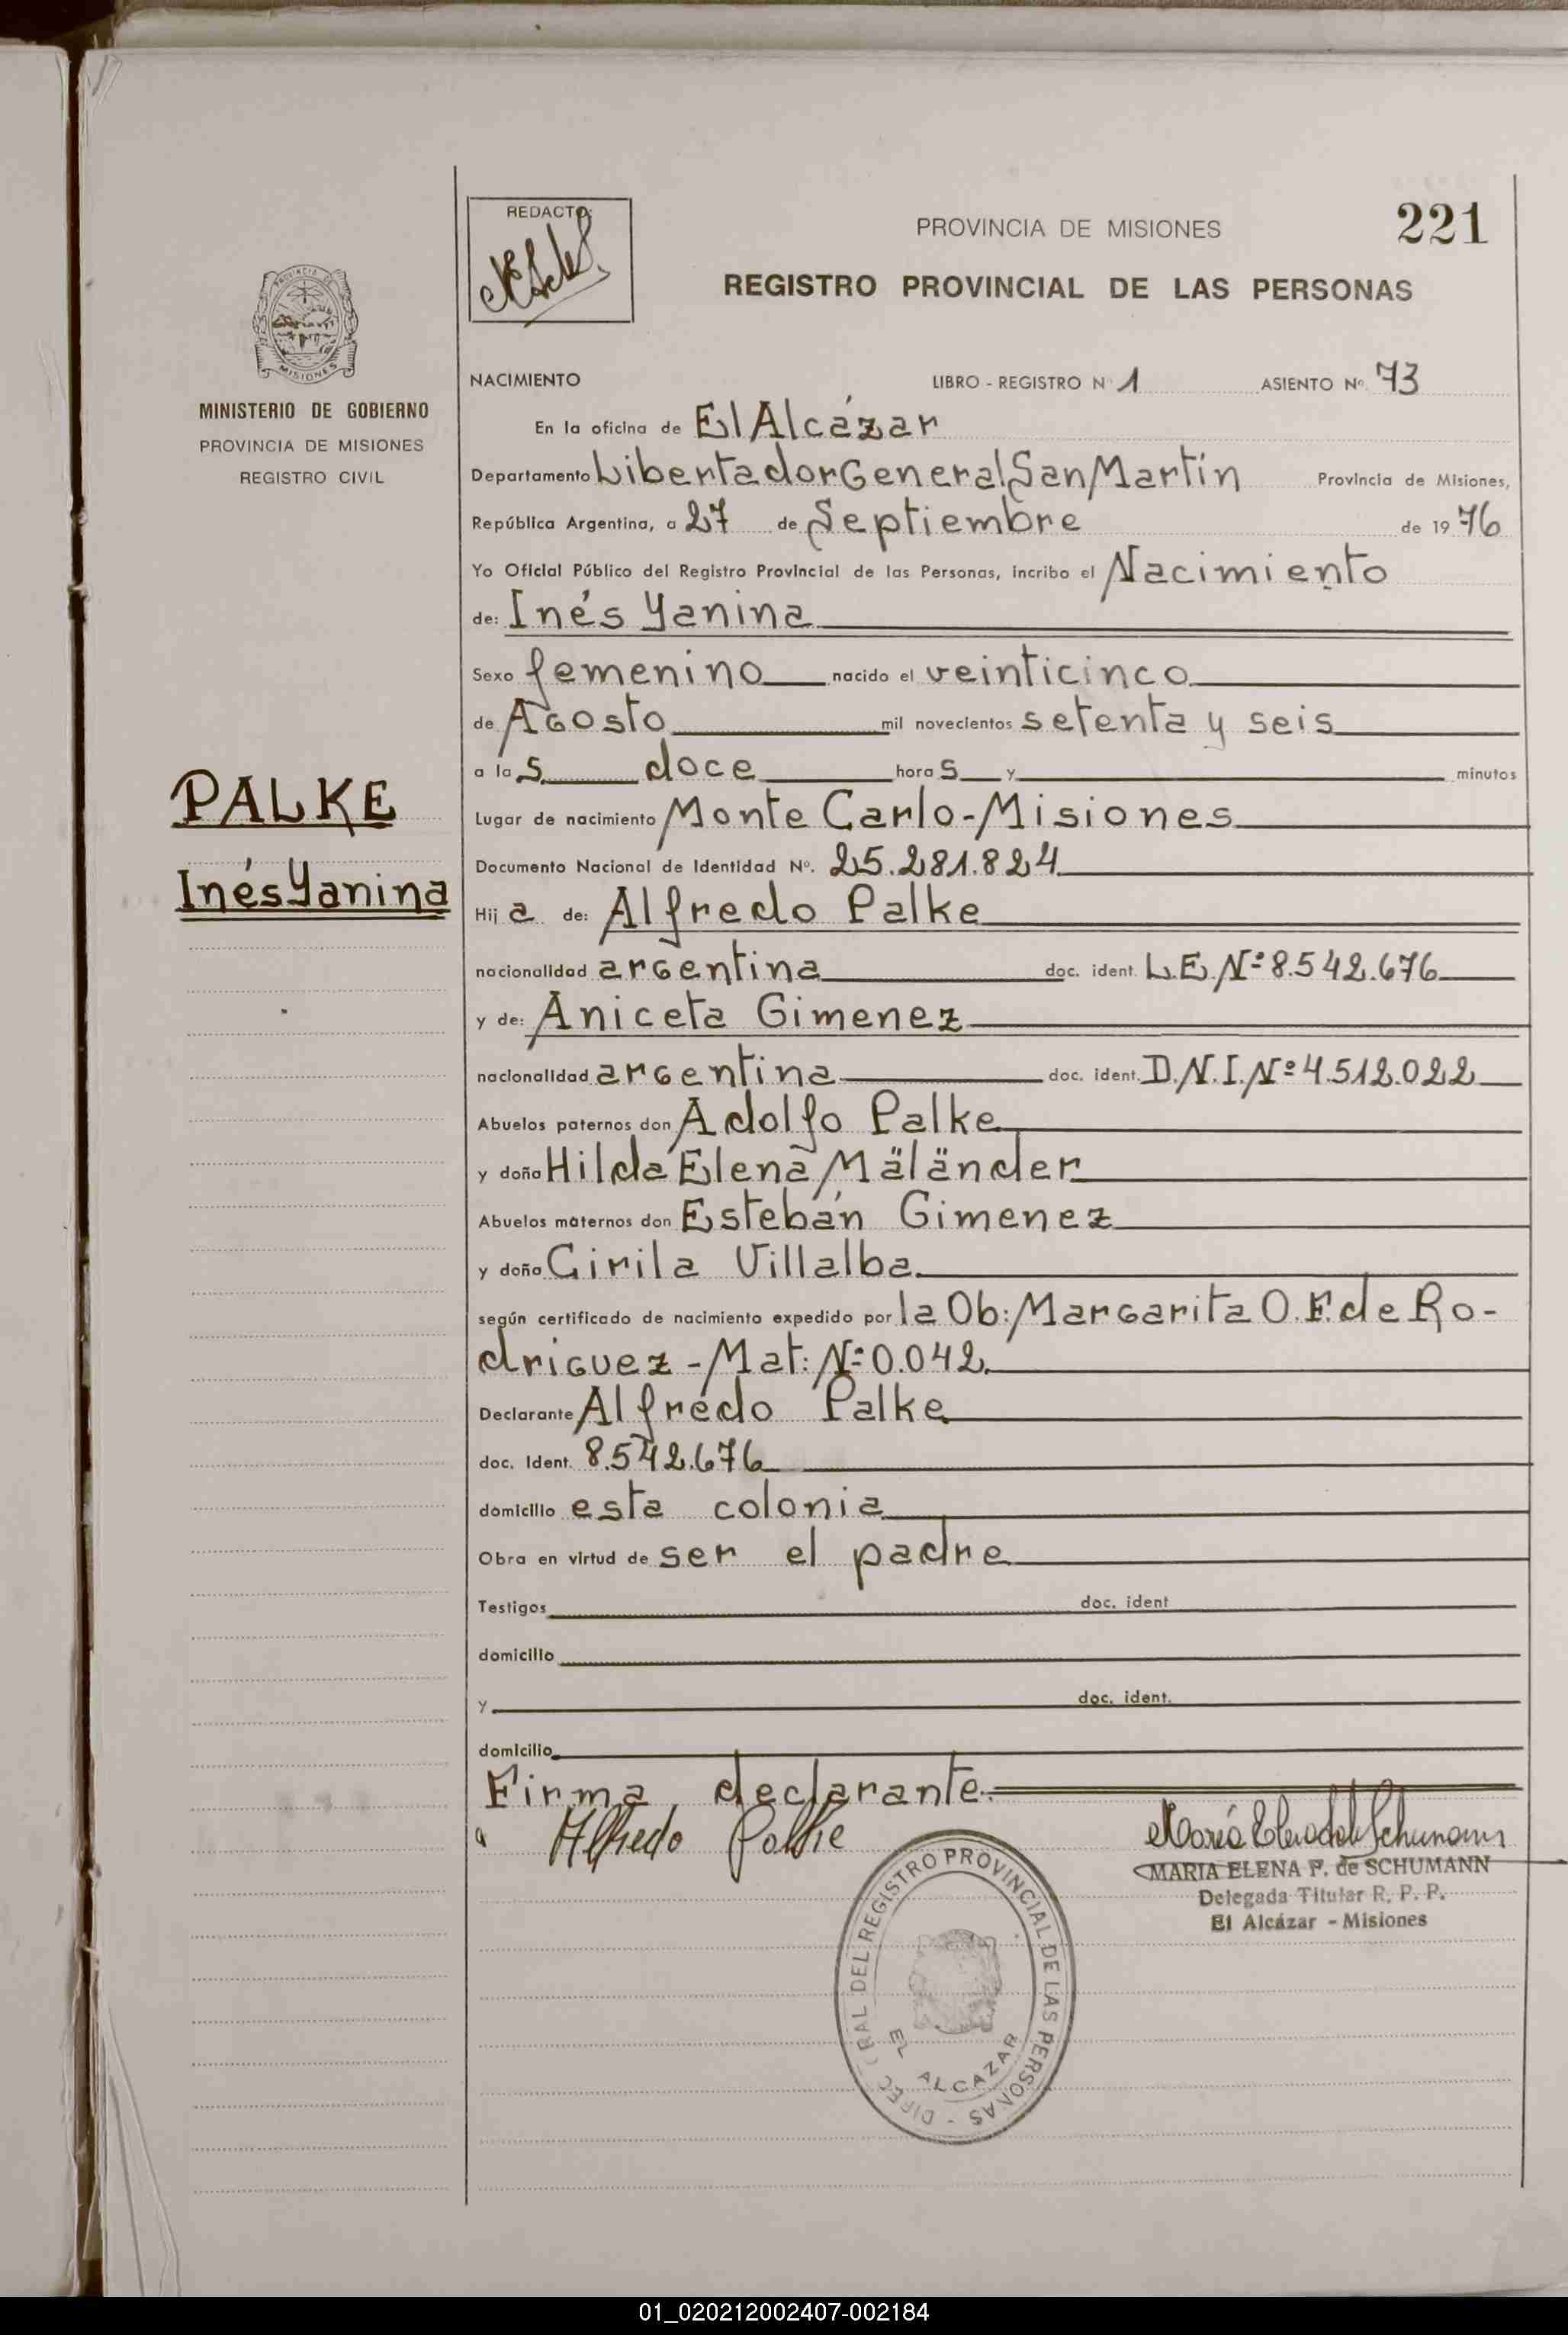 REDACTO:
PROVINCIA DE MISIONES
221
REGISTRO PROVINCIAL DE LAS PERSONAS
PROVINCIA DE
MISIONES
MINISTERIO DE GOBIERNO
PROVINCIA DE MISIONES
REGISTRO CIVIL
PALKE
Inés Yanina
NACIMIENTO LIBRO - REGISTRO Nº 1 ASIENTO Nº 73
En la oficina de El Alcázar
Departamento Libertador General San Martín Provincia de Misiones,
República Argentina, a 27 de Septiembre de 1976
Yo Oficial Público del Registro Provincial de las Personas, incribo el Nacimiento
de: Inés Yanina
Sexo femenino nacido el veinticinco
de Agosto mil novecientos setenta y seis
a las doce horas y minutos
Lugar de nacimiento Monte Carlo-Misiones
Documento Nacional de Identidad Nº. 25.281.824
Hija de: Alfredo Palke
nacionalidad argentina doc. ident. L.E.Nº 8.542.676
y de: Aniceta Gimenez
nacionalidad argentina doc. ident. D.N.I.Nº 4.512.022
Abuelos paternos don Adolfo Palke
y doña Hilda Elena Mäländer
Abuelos maternos don Estebán Gimenez
y doña Cirila Villalba
según certificado de nacimiento expedido por la Ob: Margarita O.F. de Ro-
driguez - Mat: Nº 0.042.
Declarante Alfredo Palke
doc. Ident. 8.542.676
domicilio esta colonia
Obra en virtud de ser el padre
Testigos doc. ident
domicilio
y doc. ident.
domicilio
Firma declarante.
Alfredo Palke
MARIA ELENA P. de SCHUMANN
Delegada Titular R. P. P.
El Alcázar - Misiones
DIREC RAL DEL REGISTRO PROVINCIAL DE LAS PERSONAS -
EL ALCAZAR
01_020212002407-002184